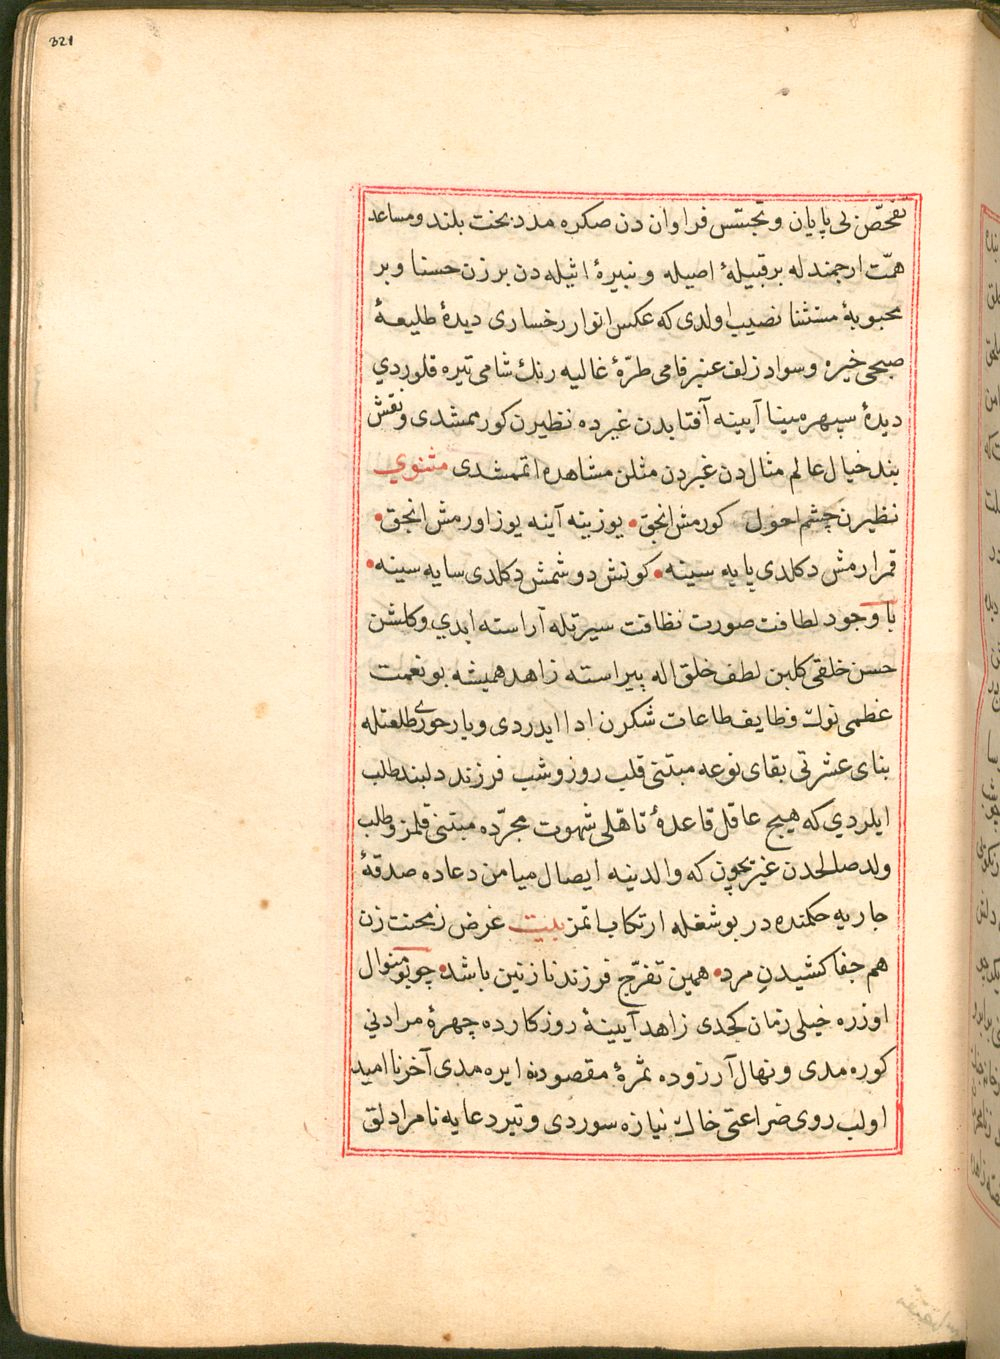 321
تفحّص بی پایان و تجسّس فراوان دن صکره مدد بخت بلند و مساعد
همّت ارجمندله بر قبیلهٔ اصیله و نبیرهٔ اثیله دن بر زن حسنا و بر
محبوبهٔ مستثنا نصیب اولدی که عکس انوار رخساری دیدهٔ طلیعهٔ
صبحی خیره و سواد زلف عنبرفامی طرّهٔ غالیه رنك شامی تیره قلوردي
دیدهٔ سپهر مینا آیینه آفتابدن غیرده نظیرن کورممشدی و نقش
بند خیال عالم مثال دن غیردن مثلن مشاهده اتممشدی مثنوي
نظیرن چشم احول کورمش انجق • یوزینه آینه یوز اورمش انجق •
قمر ارمش دکلدی پایه سینه • کونش دوشمش دکلدی سایه سینه •
با وجود لطافت صورت نظافت سیرتله آراسته ایدي و کلشن
حسن خلقی کلبن لطف خلق اله پیراسته زاهد همیشه بو نعمت
عظمی نوك وظایف طاعات شکرن ادا ایدردی و یار حوری طلعتله
بنای عشرتی بقای نوعه مبتنی قلب روز و شب فرزند دلبند طلب
ایلردي که هیچ عاقل قاعدهٔ تاهّلی شهوت مجرّده مبتنی قلمز و طلب
ولد صلحدن غیریچون که والدینه ایصال میامن دعاده صدقهٔ
جاریه حکمنده در بو شغله ارتکاب اتمز بیت غرض ز محنت زن
هم جفا کشیدن مرد • همین تفرّج فرزند نازنین باشد • چو بو منوال
اوزره خیلی زمان کجدی زاهد آیینهٔ روزکارده چهرهٔ مرادني
کوره مدی و نهال آرزوده ثمرهٔ مقصودنه ایره مدی آخر نا امید
اولب روی ضراعتی خاك نیازه سوردی و تیر دعایه نامرادلق